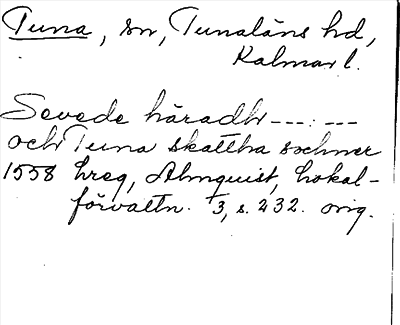 Tuna, sn, Tunaläns hd,
Kalmar l.
Sevede häradh ---:---
och Tuna skattha sochner
1558 hreg, Almquist, Lokal-
förvaltn. 3, s. 232. orig.